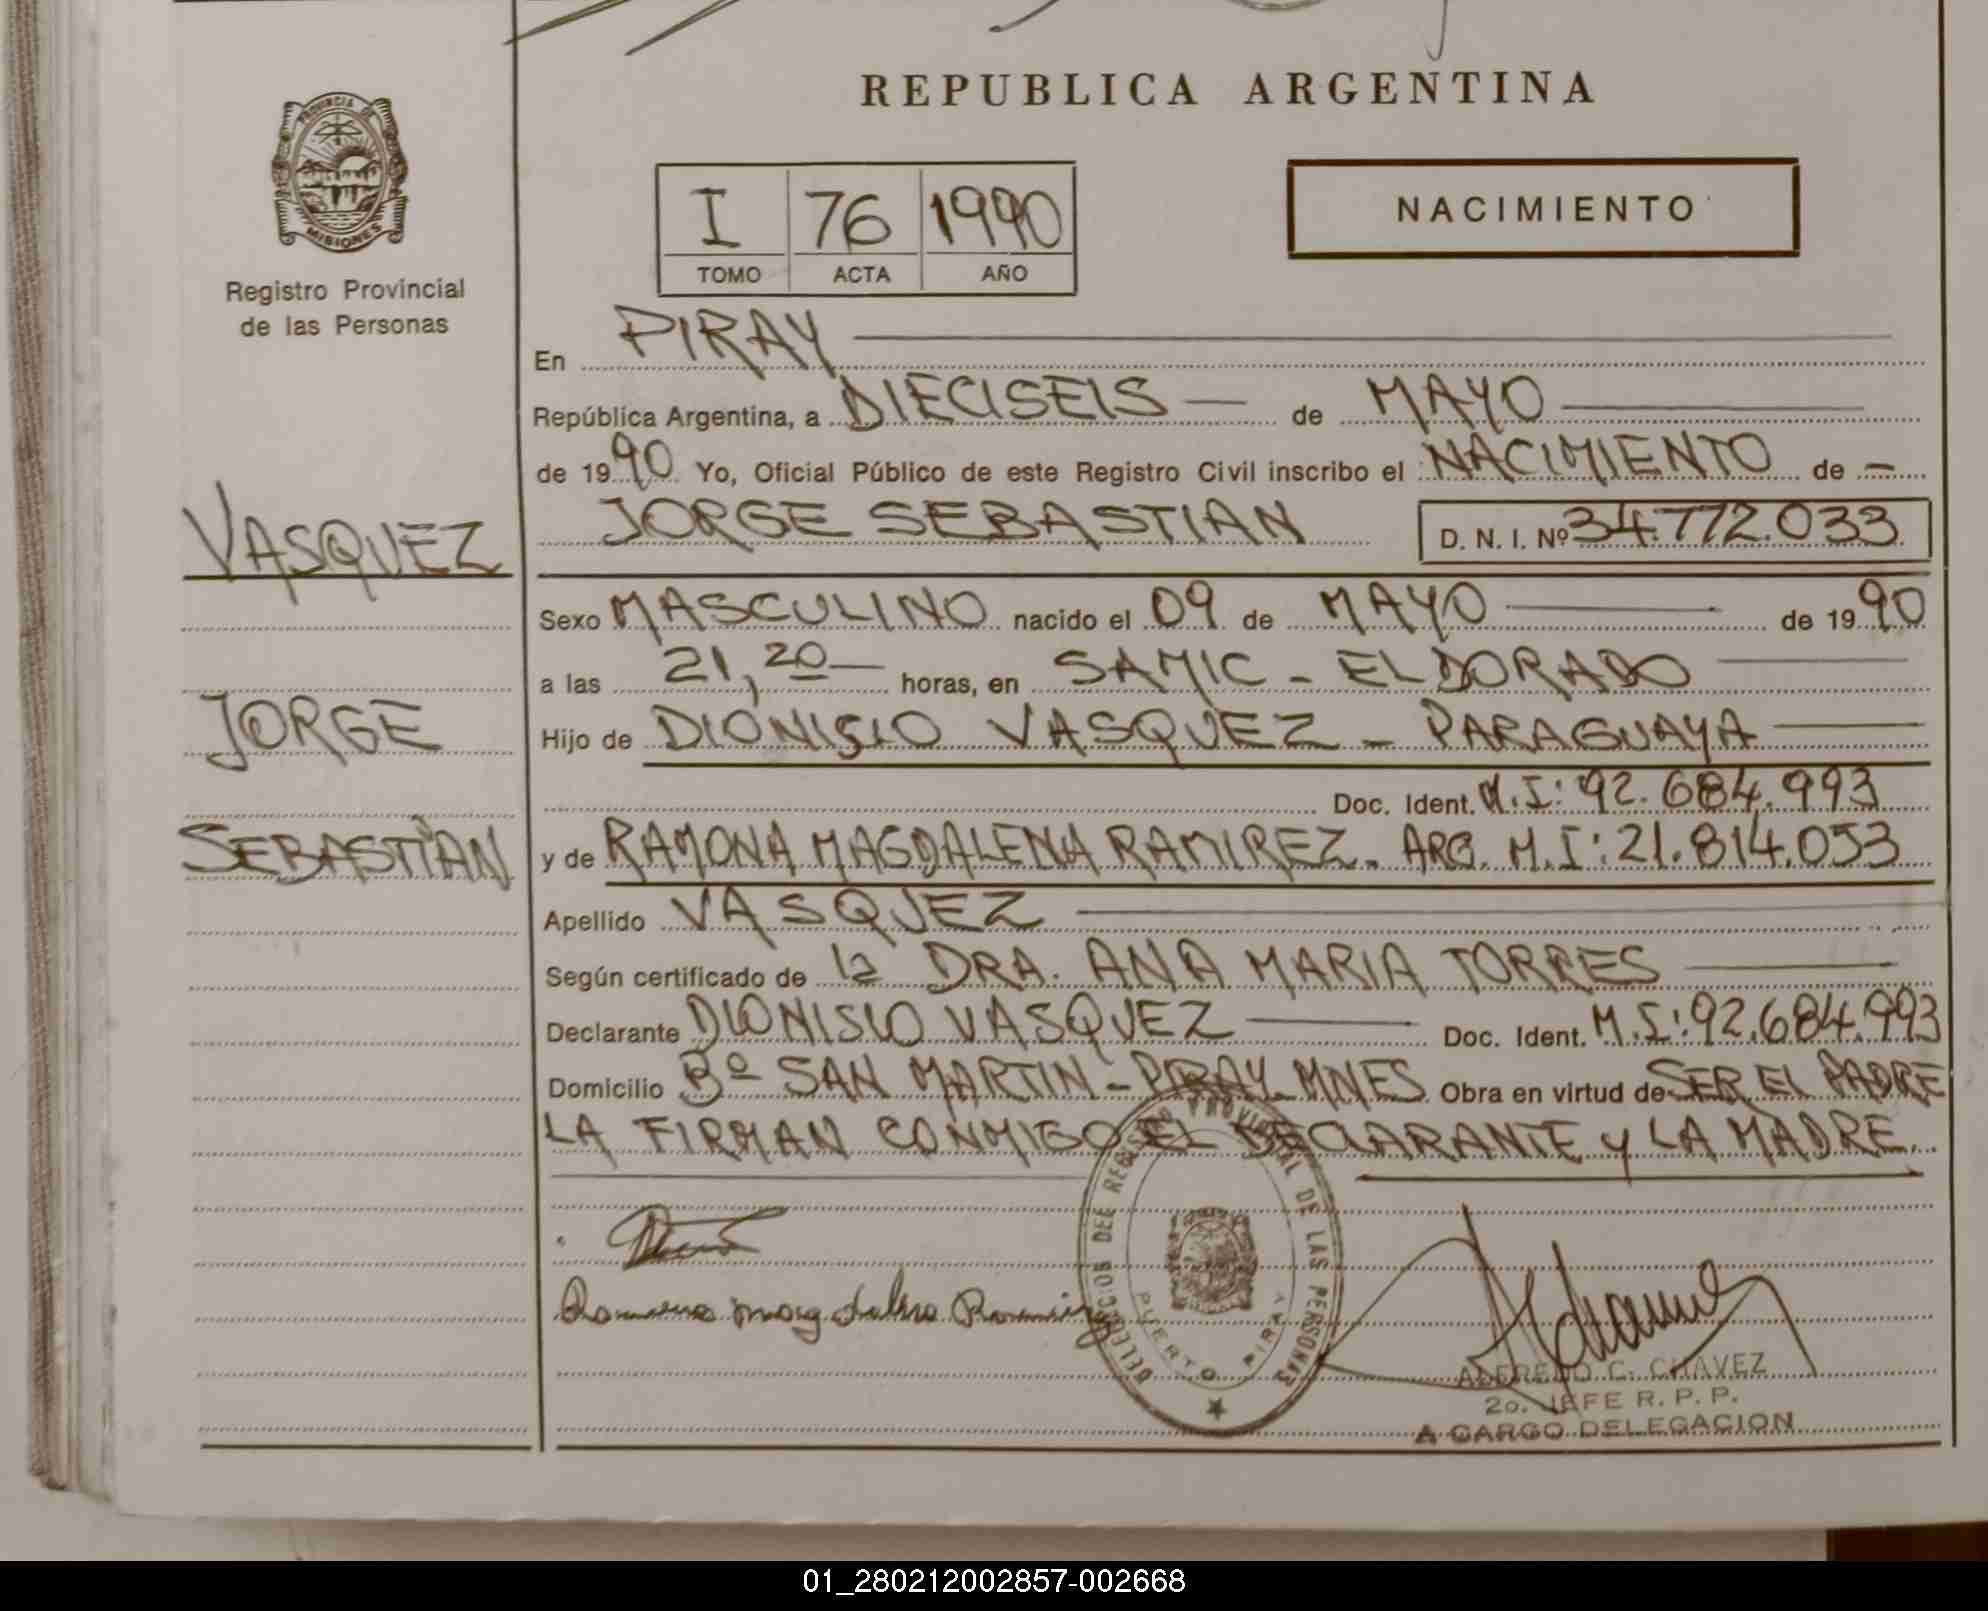 REPUBLICA ARGENTINA
PROVINCIA DE MISIONES
Registro Provincial
de las Personas
I 76 1990
TOMO ACTA AÑO
NACIMIENTO
En PIRAY
República Argentina, a DIECISEIS — de MAYO
de 1990 Yo, Oficial Público de este Registro Civil inscribo el NACIMIENTO de —
JORGE SEBASTIAN D. N. I. Nº 34.772.033
VASQUEZ
JORGE
SEBASTIAN
Sexo MASCULINO nacido el 09 de MAYO de 1990
a las 21,20 horas, en SAMIC - ELDORADO
Hijo de DIONISIO VASQUEZ - PARAGUAYA
Doc. Ident. M.I: 92.684.993
y de RAMONA MAGDALENA RAMIREZ. ARG. M.I: 21.814.053
Apellido VASQUEZ
Según certificado de la DRA. ANA MARIA TORRES
Declarante DIONISIO VASQUEZ Doc. Ident. M.I: 92.684.993
Domicilio Bº SAN MARTIN - PIRAY. MNES Obra en virtud de SER EL PADRE
LA FIRMAN CONMIGO EL DECLARANTE y LA MADRE.
Ramona magdalena Ramirez
DELEGACION DEL REGISTRO PROVINCIAL DE LAS PERSONAS
PUERTO PIRAY
ALFREDO C. CHAVEZ
2o. JEFE R. P. P.
A CARGO DELEGACION
01_280212002857-002668